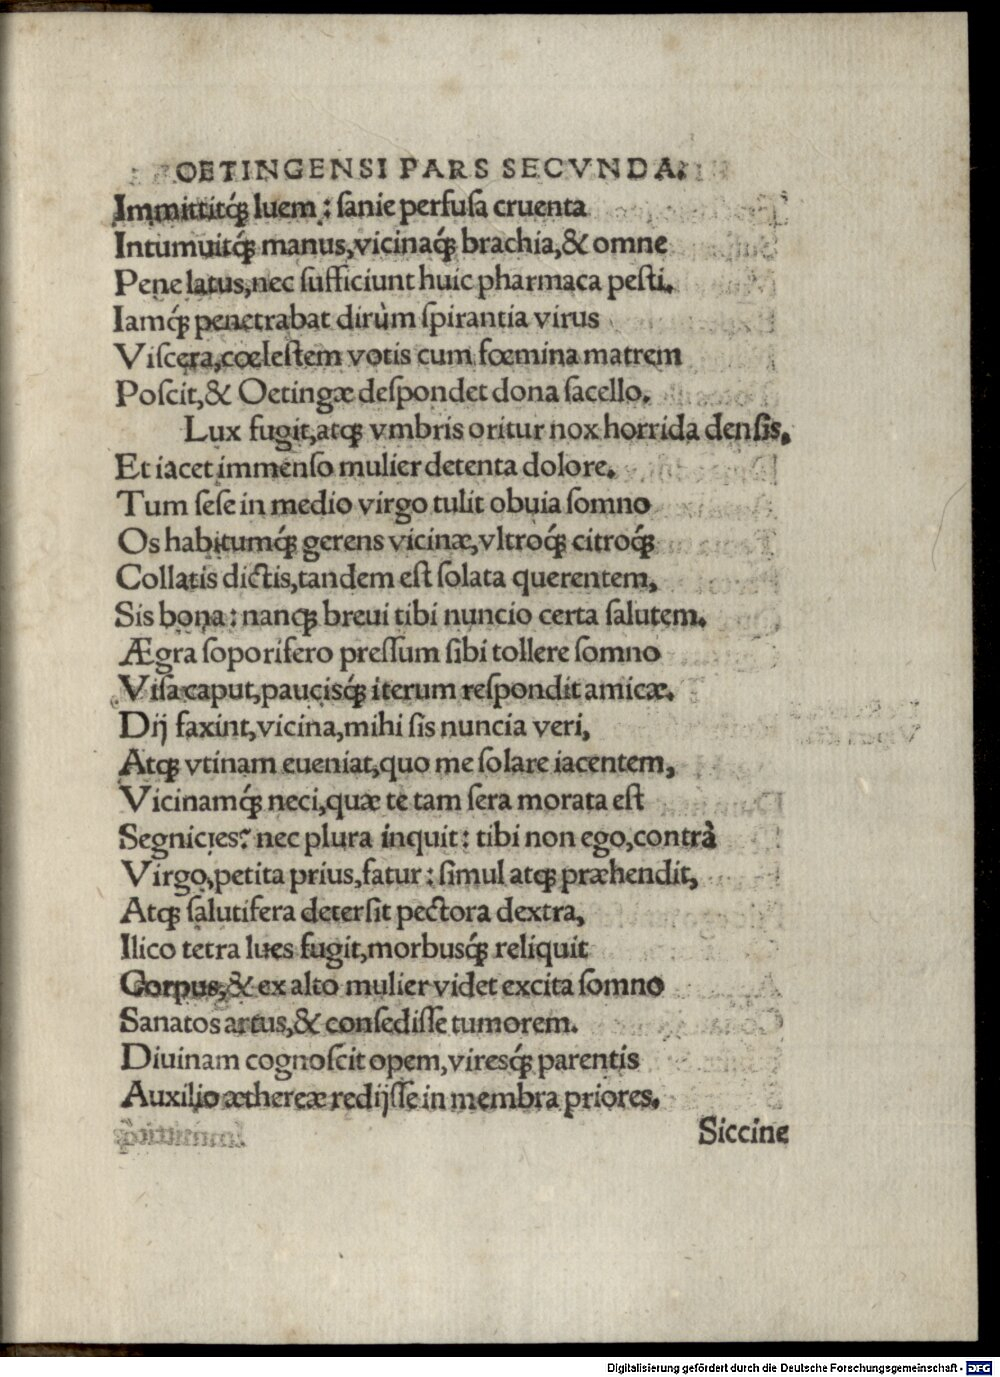 OETINGENSI PARS SECVNDA.
Immittitq́ꝫ luem: ſanie perfuſa cruenta
Intumuitq́ꝫ manus, vicinaq́ꝫ brachia, & omne
Pene latus, nec ſufficiunt huic pharmaca peſti.
Iamq́ꝫ penetrabat dirùm ſpirantia virus
Viſcera, cœleſtem votis cum fœmina matrem
Poſcit, & Oetingæ deſpondet dona ſacello.
Lux fugit, atqꝫ vmbris oritur nox horrida denſis,
Et iacet immenſo mulier detenta dolore.
Tum ſeſe in medio virgo tulit obuia ſomno
Os habitumq́ꝫ gerens vicinæ, vltroq́ꝫ citroq́ꝫ
Collatis dictis, tandem eſt ſolata querentem,
Sis bona: nanqꝫ breui tibi nuncio certa ſalutem.
Ægra ſoporifero preſſum ſibi tollere ſomno
Viſa caput, paucisq́ꝫ iterum reſpondit amicæ.
Dij faxint, vicina, mihi ſis nuncia veri,
Atqꝫ vtinam eueniat, quo me ſolare iacentem,
Vicinamq́ꝫ neci, quæ te tam ſera morata eſt
Segnicies? nec plura inquit: tibi non ego, contrà
Virgo, petita prius, fatur: ſimul atqꝫ præhendit,
Atqꝫ ſalutifera deterſit pectora dextra,
Ilico tetra lues fugit, morbusq́ꝫ reliquit
Corpus, & ex alto mulier videt excita ſomno
Sanatos artus, & conſediſſe tumorem.
Diuinam cognoſcit opem, viresq́ꝫ parentis
Auxilio æthereæ redijſſe in membra priores.
Siccine
Digitalisierung gefördert durch die Deutsche Forschungsgemeinschaft - DFG